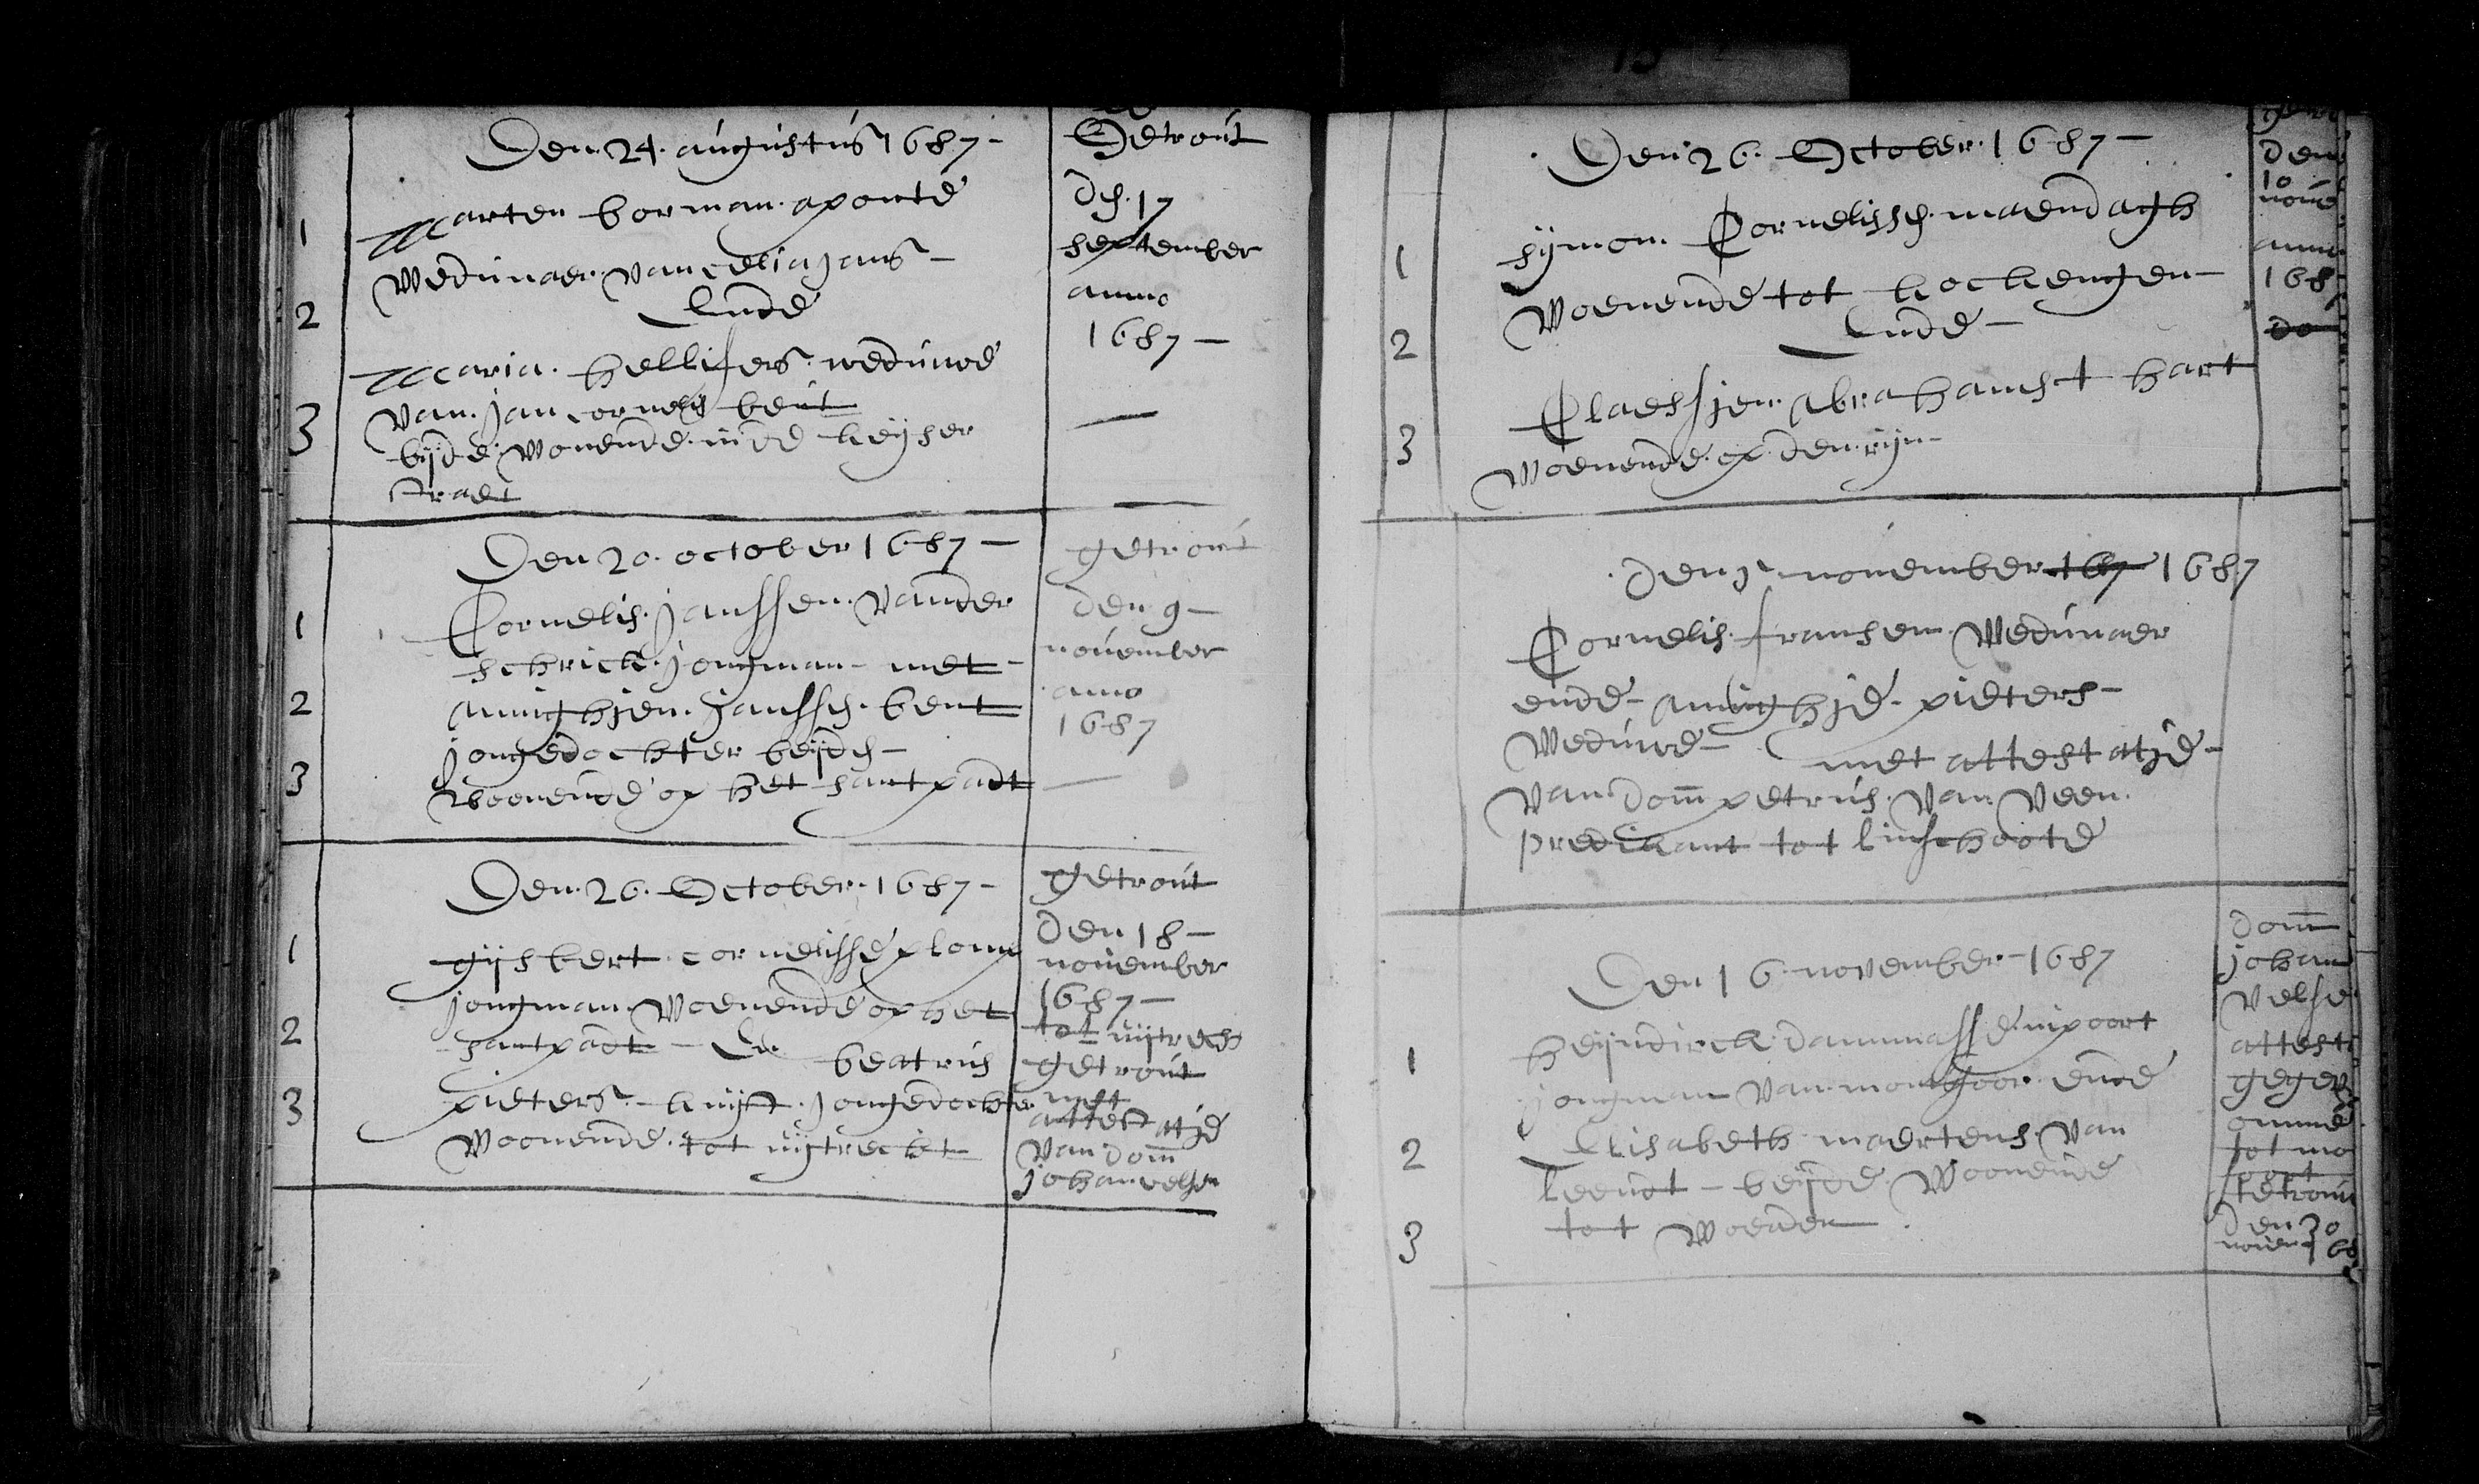 Den 24. augustus 1687 -
1
Marten borman. aponte
Wedunaer. van celia jans -
2
Ende
Maria. hellisers. weduwe
3
van. jan cornelis bent
beijde. Wonende. in de keijser
straet
Getrout
den. 17
september
anno
1687 -
Den 20. october 1687 -
1
Cornelis. janssen. vander
schrick. jongman - met -
2
Annighjen. janssen. bent
jongedochter beijden -
3
Woonende op het santpadt
getrout
den 9 -
november
anno
1687
Den. 26. October. 1687 -
1
gijsbert. cornelisse plomp
jongman. Woenende op het
2
santpadt - En beatris
3
pieters. - kuijf. jongedochter
Woonende. tot uijtrecht
getrout
den 18 -
november
1687 -
tot uijtrech
getrout
met
attestatje
van dom
johan. velsen
Den 26. October. 1687 -
1
sijmon. Cornelissen. maendagh
Woenende tot kockengen -
2
Ende -
Claessjen. Abrahams t hart
3
Woenende. op. den. rijn -
den
10
nove
anno
168
do
den 9 november 1687
Cornelis. fransen. Wedunaer
ende - Annighje. pieters -
Weduwe - met attestatje -
van dom petrus. van. veen.
predicant tot linschoote
Den 16 november - 1687
1
heijndirck. dammasse. inpoort
jongman van. montfoor. ende
2
Elisabeth. maertens. van
leeuot - beijde. Woonende
3
tot Woerden.
dom
johan
velse
attest
gegev
omme
tot mo
foort
te trouw
den 30
novem 168